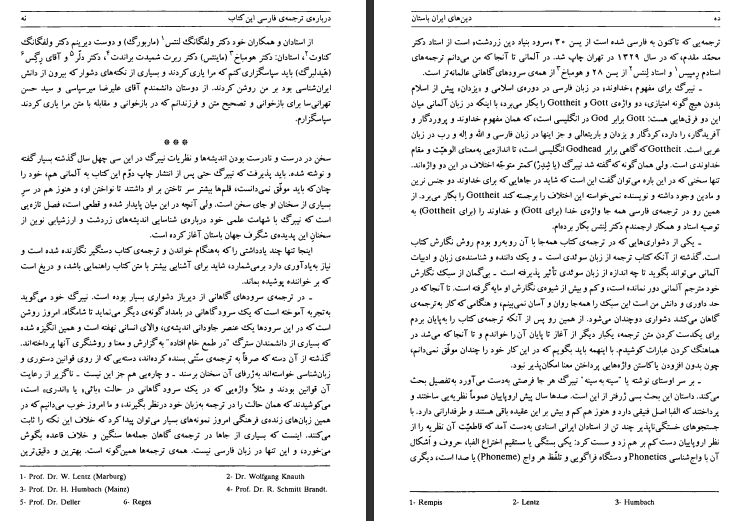 درباره‌ی ترجمه‌ی فارسی این کتاب    نه
از استادان و همکاران خود دکتر ولفگانگ لنتس۱ (ماربورگ) و دوست دیرینم دکتر ولفگانگ
کناوت۲، استادان: دکتر هومباخ۳ (ماینتس) دکتر ریرت شمیدت براندت۴، دکتر دلر۵ و آقای رگس۶
(هیدلبرگ) باید سپاسگزاری کنم که مرا یاری کردند و بسیاری از نکته‌های دشوار که بیرون از دانش
ایرانشناسی بود بر من روشن کردند. از دوستان دانشمندم آقای علیرضا میرسپاسی و سید حسن
تهرانی‌سا برای بازخوانی و تصحیح متن و فرزندانم که در بازخوانی و مقابله با متن مرا یاری کردند
سپاسگزارم.
* * *
سخن در درست و نادرست بودن اندیشه‌ها و نظریات نیبرگ در این سی چهل سال گذشته بسیار گفته
و نوشته شده. باید پذیرفت که نیبرگ حتی پس از انتشار چاپ دوّم این کتاب به آلمانی هم، خود را
چنان‌که باید موفّق نمی‌دانست، قلم‌ها بیشتر سر تاختن بر او داشتند تا نواختن او، و هنوز هم در سر
بسیاری از سخنان او جای سخن است. ولی آنچه در این میان پایدار شده و قطعی است، فصل تازه‌یی
است که نیبرگ با شهامت علمی خود درباره‌ی شناسایی اندیشه‌های زردشت و ارزشیابی نوین از
سخنان این پدیده‌ی شگرف جهان باستان آغاز کرده است.
اینجا تنها چند یادداشتی را که به‌هنگام خواندن و ترجمه‌ی کتاب دستگیر نگارنده شده است و
نیاز به‌یادآوری دارد برمی‌شمارد، شاید برای آشنایی بیشتر با متن کتاب راهنمایی باشد، و دریغ است
که بر خواننده پوشیده بماند.
ـ در ترجمه‌ی سرودهای گاهانی از دیرباز دشواری بسیار بوده است. نیبرگ خود می‌گوید
به‌تجربه آموخته است که یک سرود گاهانی در بامداد گونه‌ی دیگر می‌نماید تا شامگاه. امروز روشن
است که در این سرودها یک عنصر جاودانی اندیشه‌ی، والای انسانی نهفته است و همین انگیزه شده
که بسیاری از دانشمندان سترگ "در طمع خام افتاده" به‌گزارش و معنا و روشنگری آنها پرداخته‌اند.
گذشته از آن دسته که صرفاً به ترجمه‌ی سنّتی بسنده کرده‌اند، دسته‌یی که از روی قوانین دستوری و
زبان‌شناسی خواسته‌اند به‌ژرفای آن سخنان برسند ـ و چاره‌یی هم جز این نیست ـ ناگزیر از رعایت
آن قوانین بودند و مثلاً واژه‌یی که در یک سرود گاهانی در حالت «بائی» یا «اندری» است،
می‌کوشیدند که همان حالت را در ترجمه به‌زبان خود درنظر بگیرند، و ما امروز خوب می‌دانیم که در
همین زبان‌های زنده‌ی فرهنگی امروز نمونه‌های بسیار می‌توان پیدا کرد که خلاف این نکته را ثابت
می‌کنند. اینست که بسیاری از جاها در ترجمه‌ی گاهان جمله‌ها سنگین و خلاف قاعده بگوش
می‌خورد، و این تنها در زبان فارسی نیست. همه‌ی ترجمه‌ها همین‌گونه است. بهترین و دقیق‌ترین
1- Prof. Dr. W. Lentz (Marburg)    2- Dr. Wolfgang Knauth
3- Prof. Dr. H. Humbach (Mainz)    4- Prof. Dr. R. Schmitt Brandt.
5- Prof. Dr. Deller    6- Reges
ده    دین‌های ایران باستان
ترجمه‌یی که تاکنون به فارسی شده است از یسن ۳۰ «سرود بنیاد دین زردشت» است از استاد دکتر
محمّد مقدم، که در سال ۱۳۲۹ در تهران چاپ شد. در آلمانی تا آنجا که من می‌دانم ترجمه‌های
استادم رمپیس۱ و استاد لنتس۲ از یسن ۲۸ و هومباخ۳ از همه‌ی سرودهای گاهانی عالمانه‌تر است.
ـ نیبرگ برای مفهوم «خداوند»، در زبان فارسی در دوره‌ی اسلامی و «یزدان» پیش از اسلام
بدون هیچ‌گونه امتیازی، دو واژه‌ی Gott و Gottheit را بکار می‌برد، با اینکه در زبان آلمانی میان
این دو فرق‌هایی هست: Gott برابر God در انگلیسی است، که همان مفهوم خداوند و پروردگار و
آفریدگار، را دارد، کردگار و یزدان و باریتعالی و جز اینها در زبان فارسی و الله و إله و رب در زبان
عربی است. Gottheit که گاهی برابر Godhead انگلیسی است، تا اندازه‌یی به‌معنای الوهیّت و مقام
خداوندی است. ولی همان‌گونه که گفته شد نیبرگ (یا شِدِر) کمتر متوجّه اختلاف در این دو واژه‌اند.
تنها سخنی که در این باره می‌توان گفت این است که شاید در جاهایی که برای خداوند دو جنس نرین
و مادین وجود داشته و نویسنده نمی‌خواسته این اختلاف را برجسته کند Gottheit را بکار می‌برد. از
همین رو در ترجمه‌ی فارسی همه جا واژه‌ی خدا (برای Gott) و خداوند را (برای Gottheit) به
توصیه استاد و همکار ارجمندم دکتر لنتس بکار برده‌ام.
ـ یکی از دشواری‌هایی که در ترجمه‌ی کتاب همه‌جا با آن روبه‌رو بودم روش نگارش کتاب
است. گذشته از آنکه کتاب ترجمه از زبان سوئدی است ـ و یک داننده و شناسنده‌ی زبان و ادبیات
آلمانی می‌تواند بگوید تا چه اندازه از زبان سوئدی تأثیر پذیرفته است ـ بی‌گمان از سبک نگارش
خود مترجم آلمانی دور نمانده است، و کم و بیش از شیوه‌ی نگارش او مایه گرفته است. تا آنجا که در
حد داوری و دانش من است این سبک را همه‌جا روان و آسان نمی‌بینم، و هنگامی که کار به‌ترجمه‌ی
گاهان می‌کشد دشواری دوچندان می‌شود. از همین رو پس از آنکه ترجمه‌ی کتاب را به‌پایان بردم
برای یکدست کردن متن ترجمه، یکبار دیگر از آغاز تا پایان آن را خواندم و تا آنجا که می‌شد در
هماهنگ کردن عبارات کوشیدم. با اینهمه باید بگویم که در این کار خود را چندان موفّق نمی‌دانم،
چون بدون افزودن یا کاستن واژه‌هایی پرداختن معنا امکان‌پذیر نبود.
ـ بر سر اوستای نوشته یا "سینه به سینه" نیبرگ هر جا فرصتی به‌دست می‌آورد به‌تفصیل بحث
می‌کند. داستان این بحث بسی ژرفتر از این است. صدها سال پیش اروپاییان عموماً نظریه‌یی ساختند و
پرداختند که الفبا اصل فنیقی دارد و هنوز هم کم و بیش بر این عقیده باقی هستند و طرفدارانی دارد. با
جستجوهای خستگی‌ناپذیر چند تن از استادان ایرانی اسنادی به‌دست آمد که قاطعیّت آن نظریه را از
نظر اروپاییان دست کم بر هم زد و سست کرد: یکی بستگی یا مستقیم اختراع الفبا، حروف و أشکال
آن با واج‌شناسی Phonetics و دستگاه فراگویی و تلفّظ هر واج (Phoneme) یا صدا است، دیگری
1- Rempis    2- Lentz    3- Humbach